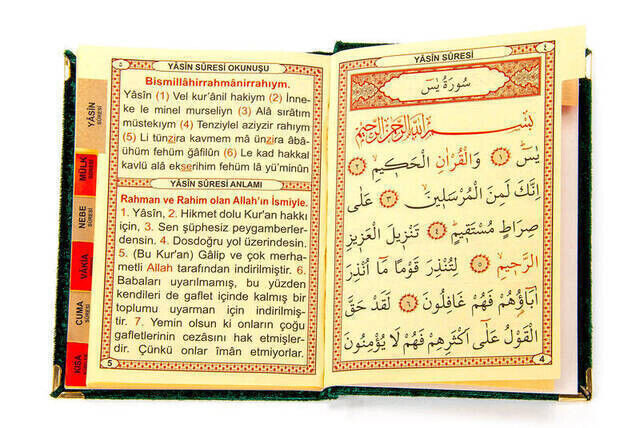 ٤
YÂSİN SÛRESİ
سُورَةُ يٰسٓ
بِسْمِ اللّٰهِ الرَّحْمٰنِ الرَّحِيمِ
يٰسٓ ﴿١﴾ وَالْقُرْاٰنِ الْحَكِيمِ ﴿٢﴾
اِنَّكَ لَمِنَ الْمُرْسَلِينَ ﴿٣﴾ عَلٰى
صِرَاطٍ مُسْتَقِيمٍ ﴿٤﴾ تَنْزِيلَ الْعَزِيزِ
الرَّحِيمِ ﴿٥﴾ لِتُنْذِرَ قَوْمًا مَٓا اُنْذِرَ
اٰبَٓاؤُهُمْ فَهُمْ غَافِلُونَ ﴿٦﴾ لَقَدْ حَقَّ
الْقَوْلُ عَلٰٓى اَكْثَرِهِمْ فَهُمْ لَا يُؤْمِنُونَ
4
٥
YÂSİN SÛRESİ OKUNUŞU
Bismillâhirrahmânirrahıym.
Yâsîn (1) Vel kur'ânil hakiym (2) İnne-
ke le minel murseliyn (3) Alâ sırâtım
müstekıym (4) Tenziylel aziyzir rahıym
(5) Li tünzira kavmem mâ ünzira âbâ-
ühüm fehüm ğâfilûn (6) Le kad hakkal
kavlü alâ ekserihim fehüm lâ yü'minûn
YÂSİN SÛRESİ ANLAMI
Rahman ve Rahim olan Allah'ın İsmiyle.
1. Yâsîn, 2. Hikmet dolu Kur'an hakkı
için, 3. Sen şüphesiz peygamberler-
densin. 4. Dosdoğru yol üzerindesin.
5. (Bu Kur'an) Gâlip ve çok merha-
metli Allah tarafından indirilmiştir. 6.
Babaları uyarılmamış, bu yüzden
kendileri de gaflet içinde kalmış bir
toplumu uyarman için indirilmiş-
tir. 7. Yemin olsun ki onların çoğu
gafletlerinin cezasını hak etmişler-
dir. Çünkü onlar îman etmiyorlar.
5
YÂSİN
SÛRESİ
MÜLK
SÛRESİ
NEBE
SÛRESİ
VÂKIA
CUMA
SÛRESİ
KISA